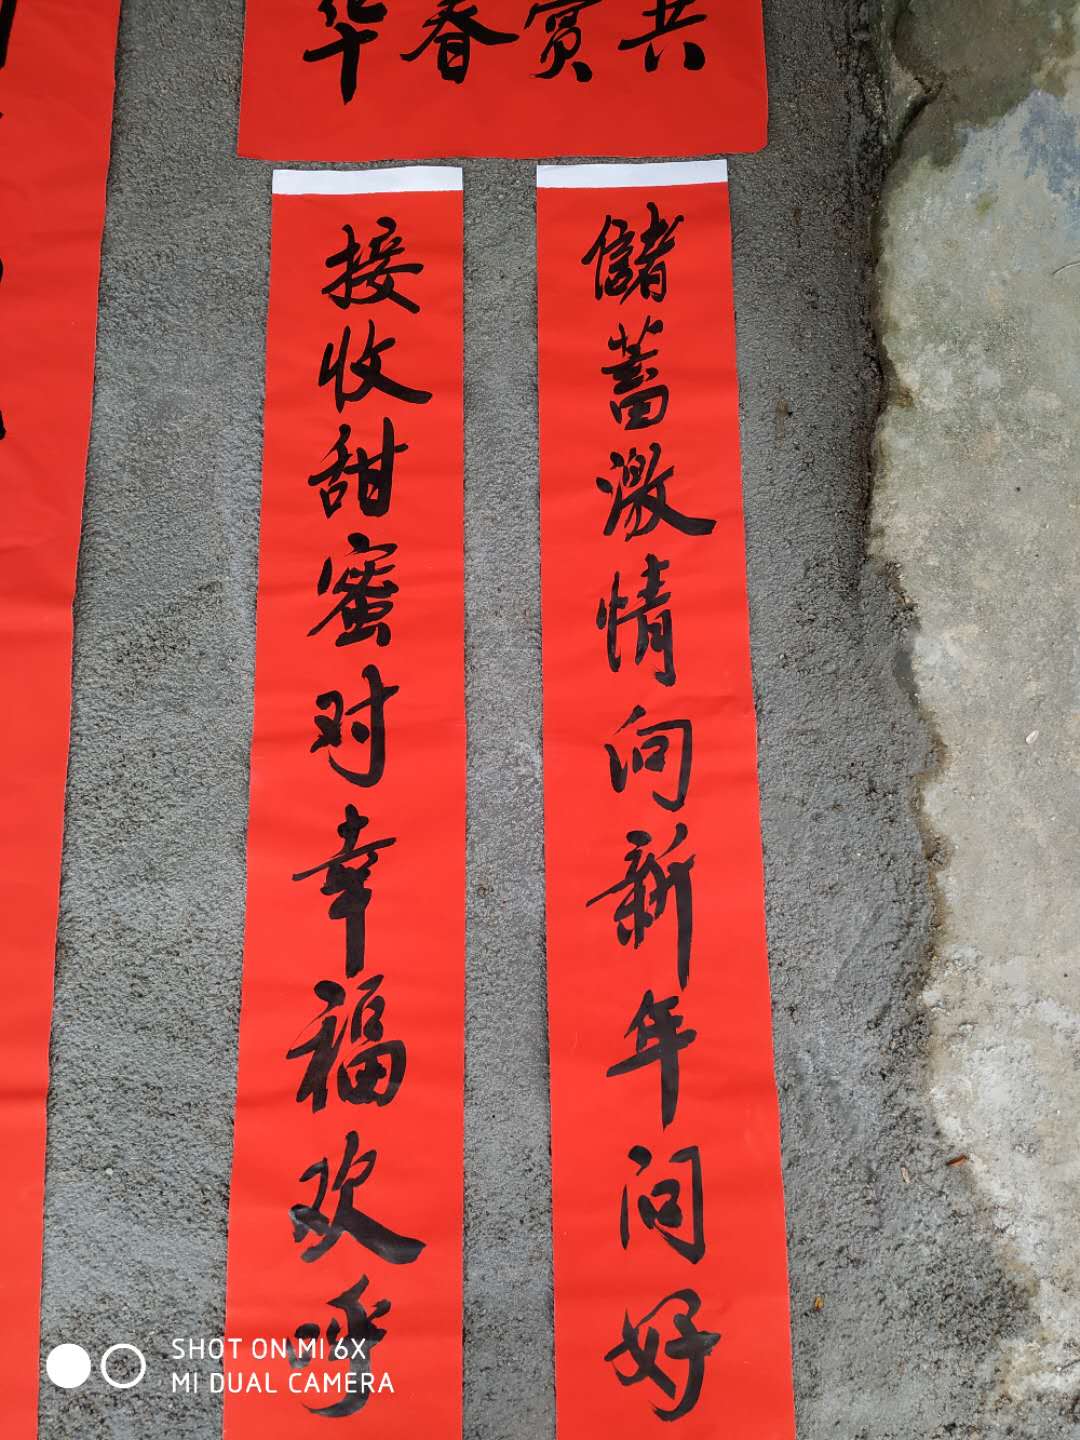 华春赏共
儲蓄激情向新年问好
接收甜蜜对幸福欢呼
SHOT ON MI 6X
MI DUAL CAMERA